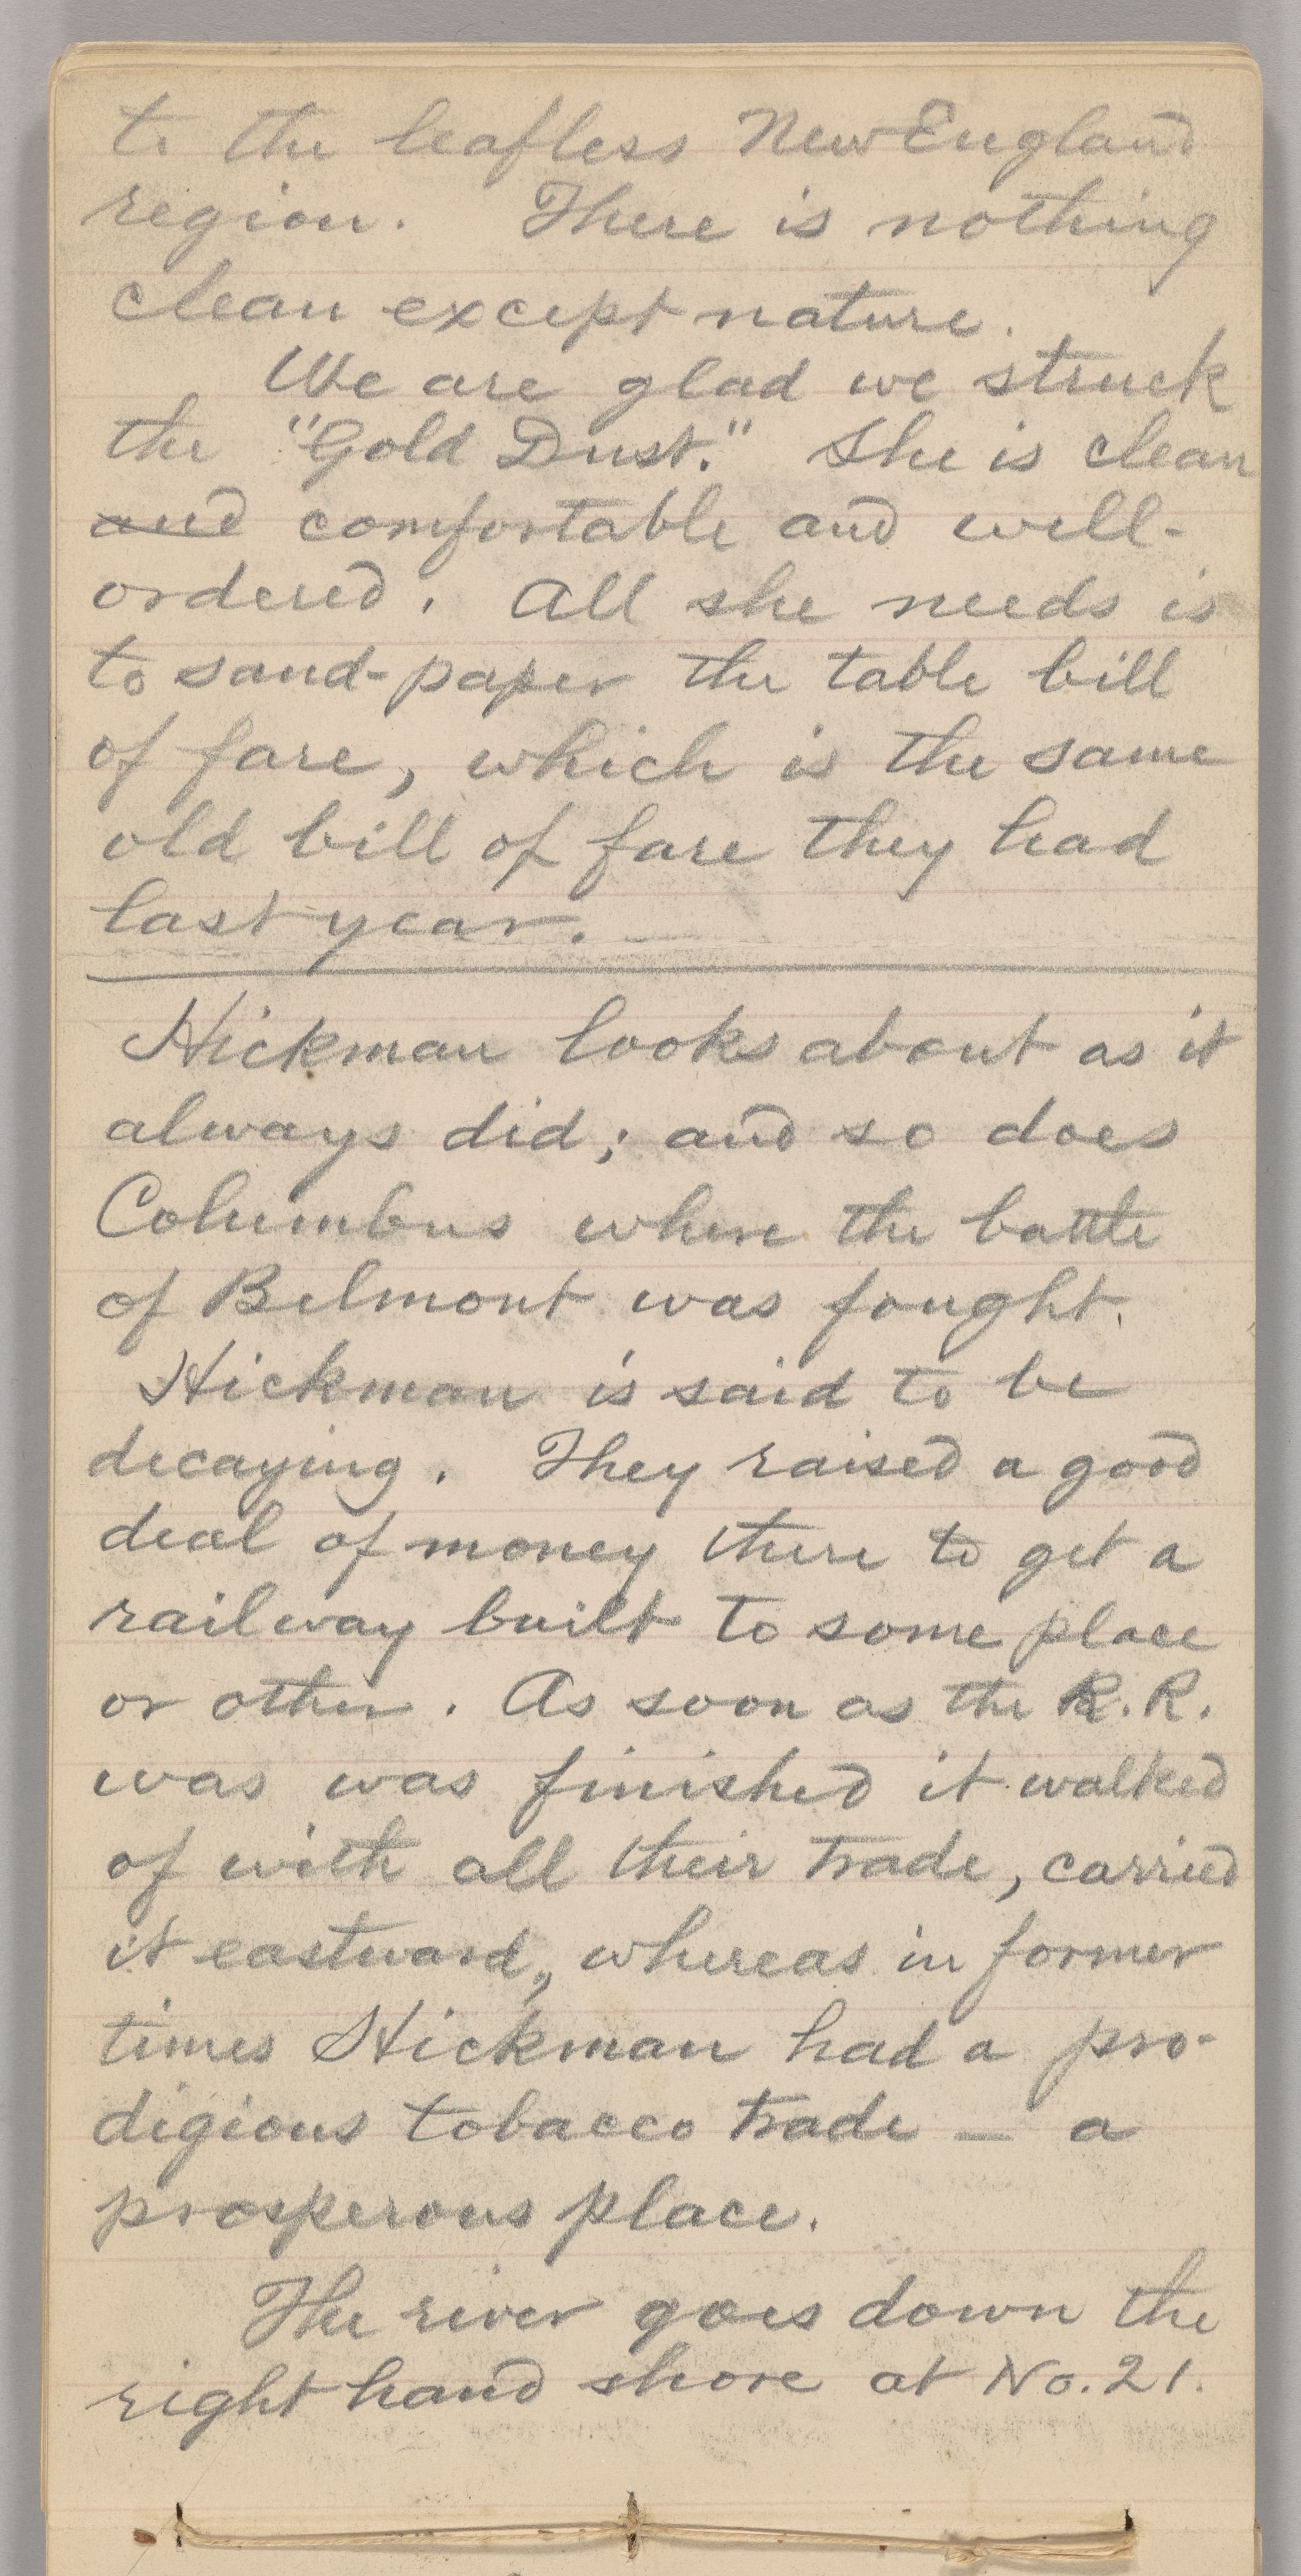 to the leafless New England
region. There is nothing
clean except nature.
We are glad we struck
the "Gold Dust." She is clean
and comfortable and well-
ordered. All she needs is
to sand-paper the table bill
of fare, which is the same
old bill of fare they had
last year.
Hickman looks about as it
always did; and so does
Columbus where the battle
of Belmont was fought.
Hickman is said to be
decaying. They raised a good
deal of money there to get a
railway built to some place
or other. As soon as the R.R.
was was finished it walked
of with all their trade, carried
it eastward, whereas in former
times Hickman had a pro-
digious tobacco trade — a
prosperous place.
The river goes down the
right hand shore at No. 21.